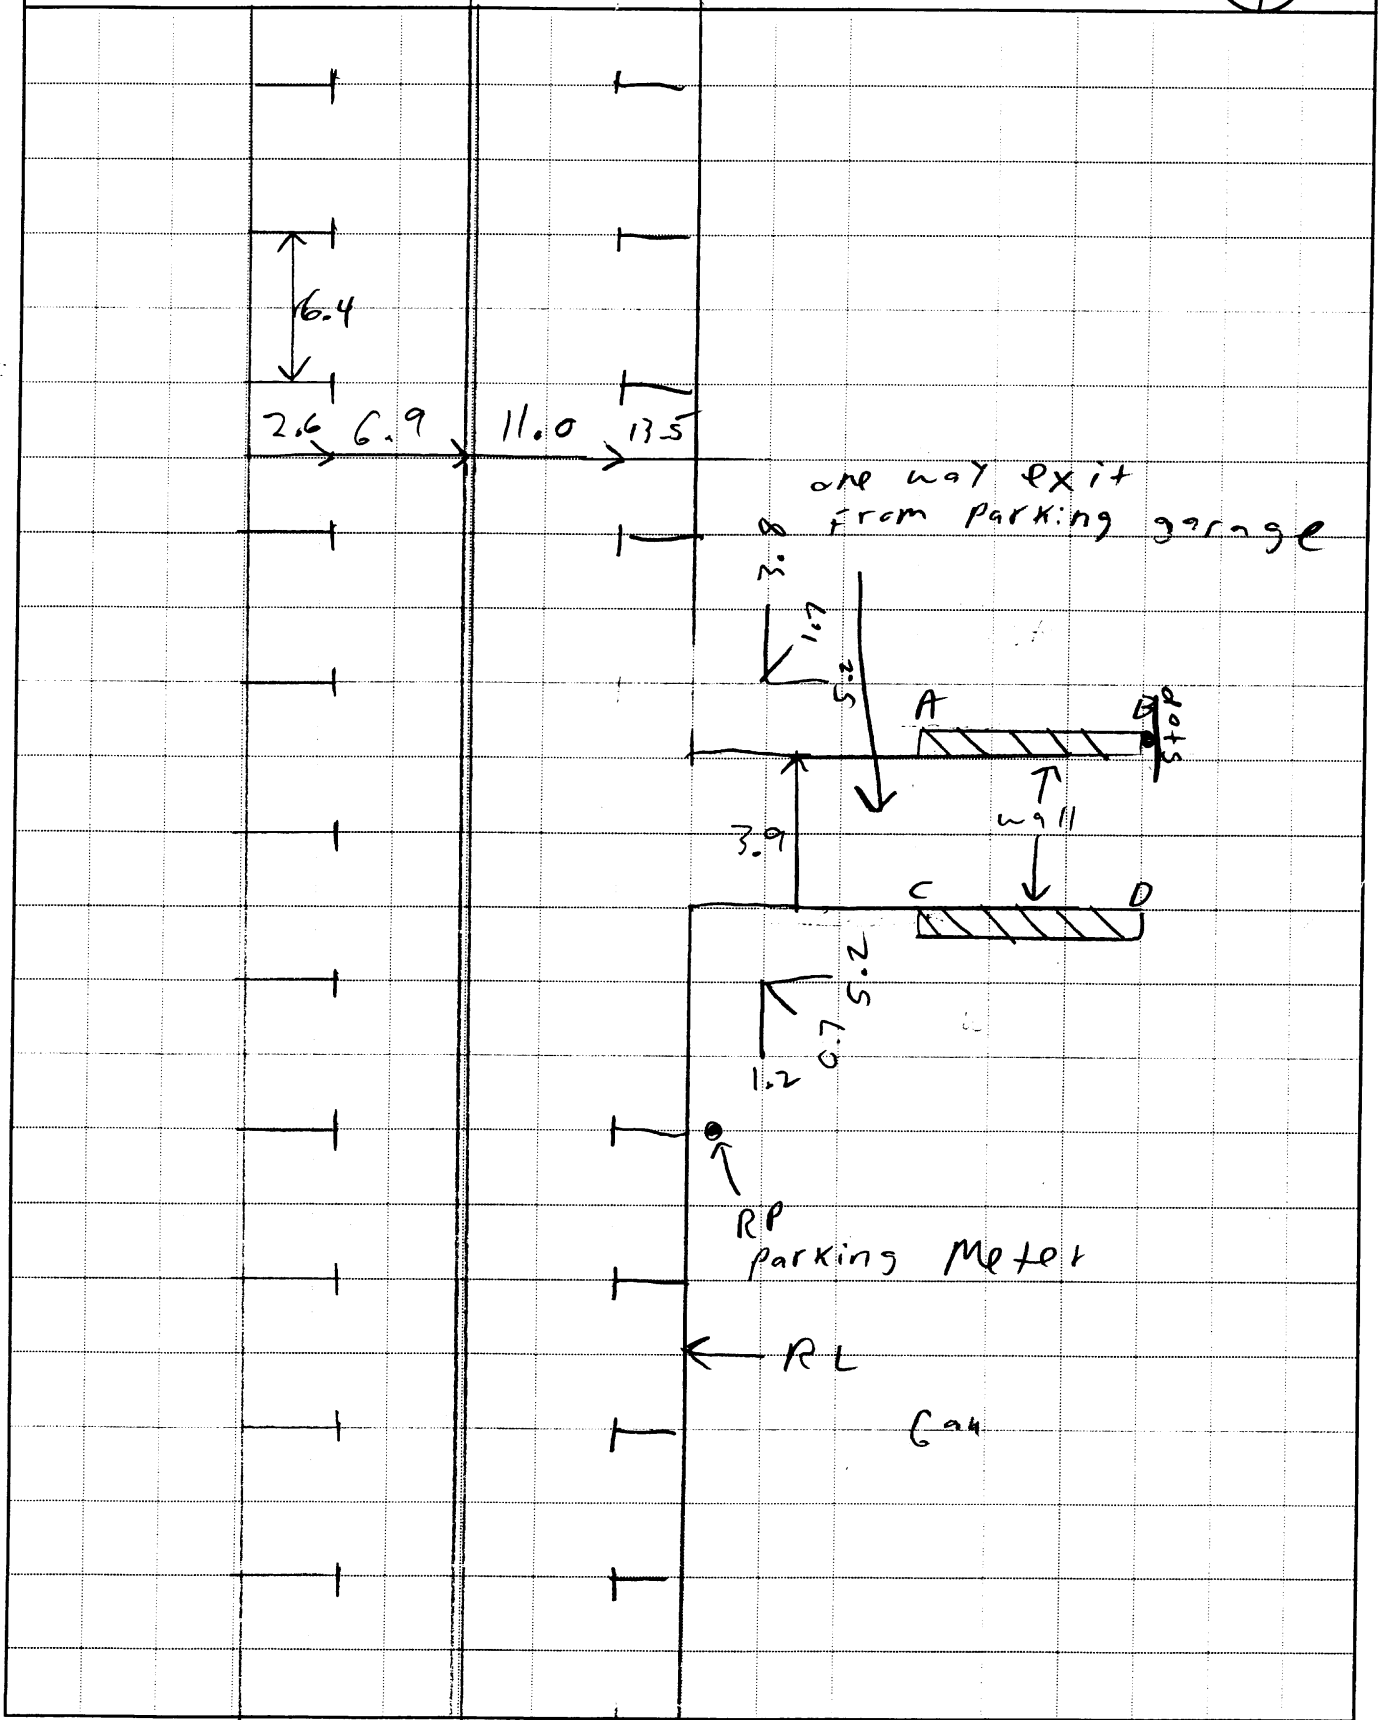 6.4
2.6 6.9 11.0 13.5
one way exit
from parking garage
3.8
1.7
5.2
A
B
stop
wall
3.9
C
D
5.2
0.7
1.2
RP
parking Meter
RL